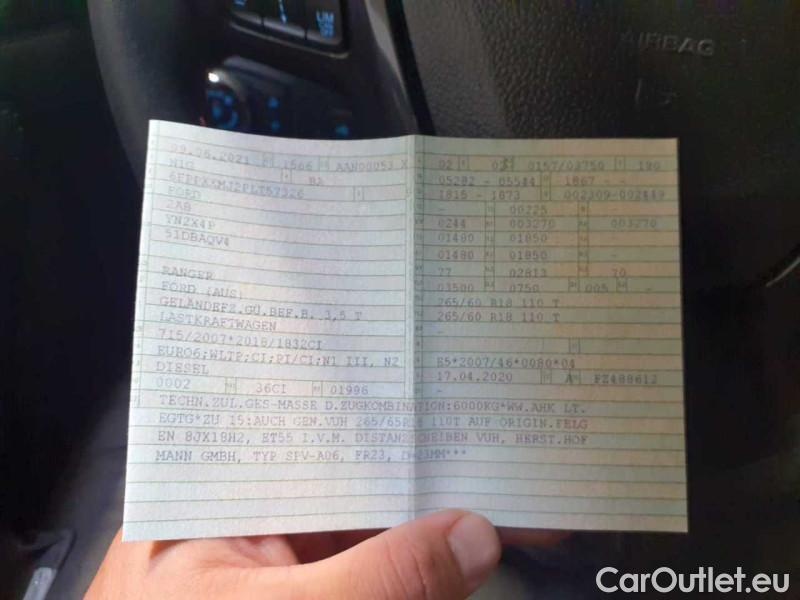 UM
AIRBAG
09.06.2021 1566 AAN00053 X 02 0157/03750 190
N1G BA 05282 - 05544 1867 - -
6FPPXXMJ2PLT57326 1815 - 1873 002309-002449
FORD - 00225 -
2AB 0244 003270 003270
YN2X4P 01480 01850 -
51DBAQV4 01480 01850 -
77 02813 70
RANGER 03500 0750 005 -
FORD (AUS) 265/60 R18 110 T
GELÄNDEFZ.GÜ.BEF.B. 3,5 T 265/60 R18 110 T
LASTKRAFTWAGEN -
715/2007*2018/1832CI - -
EURO6;WLTP;CI;PI/CI;N1 III, N2 E5*2007/46*0080*04
DIESEL 17.04.2020 A FZ488612
0002 36CI 01996 -
TECHN.ZUL.GES-MASSE D.ZUGKOMBINATION:6000KG*WW.AHK LT.
EGTG*ZU 15:AUCH GEN.VUH 265/65R18 110T AUF ORIGIN.FELG
EN 8JX18H2, ET55 I.V.M. DISTANZSCHEIBEN VUH, HERST.HOF
MANN GMBH, TYP SPV-A06, FR23, D=23MM***
CarOutlet.eu